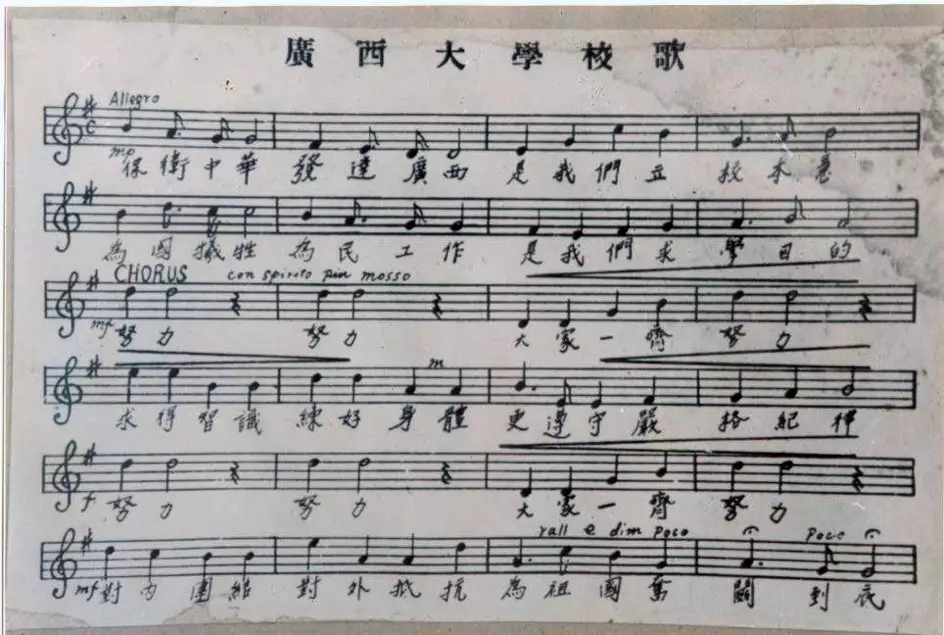 廣西大學校歌
Allegro
mp
保衛中華發達廣西是我們立校本意
為國犧牲為民工作是我們求學目的
CHORUS con spirito piu mosso
mf
努力努力大家一齊努力
m
求得智識練好身體更遵守嚴格紀律
f
努力努力大家一齊努力
rall e dim poco poco
mf
對內團結對外抵抗為祖國奮鬬到底